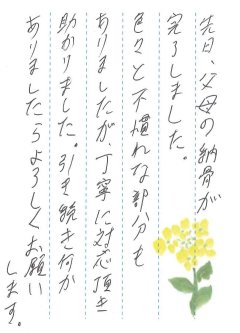 先日、父母の納骨が
完了しました。
色々と不慣れな部分も
ありましたが、丁寧に対応頂き
助かりました。引き続き何か
ありましたらよろしくお願い
します。